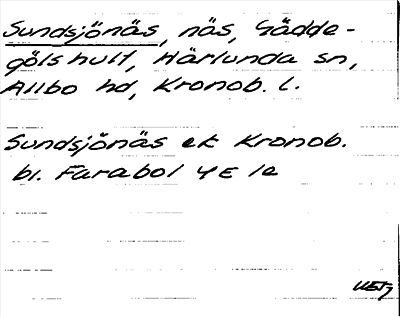 Sundsjönäs, näs, Gädde-
gölshult, Härlunda sn,
Allbo hd, Kronob. l.
Sundsjönäs ek Kronob.
bl. Farabol 4E 1e